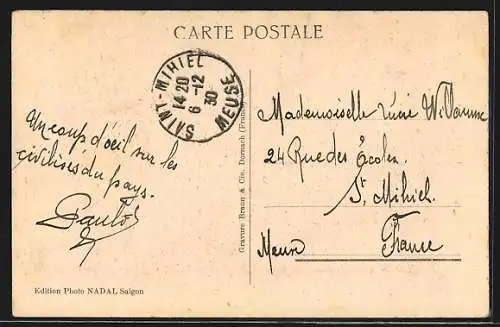 CARTE POSTALE
SAINT-MIHIEL
14-20
6 -12
30
MEUSE
Un coup d'oeil sur les
civilisés du pays.
Mademoiselle
24 Rue des Écoles.
St Mihiel.
Meuse France
Gravure Braun & Cie, Dornach (France)
Edition Photo NADAL Saigon